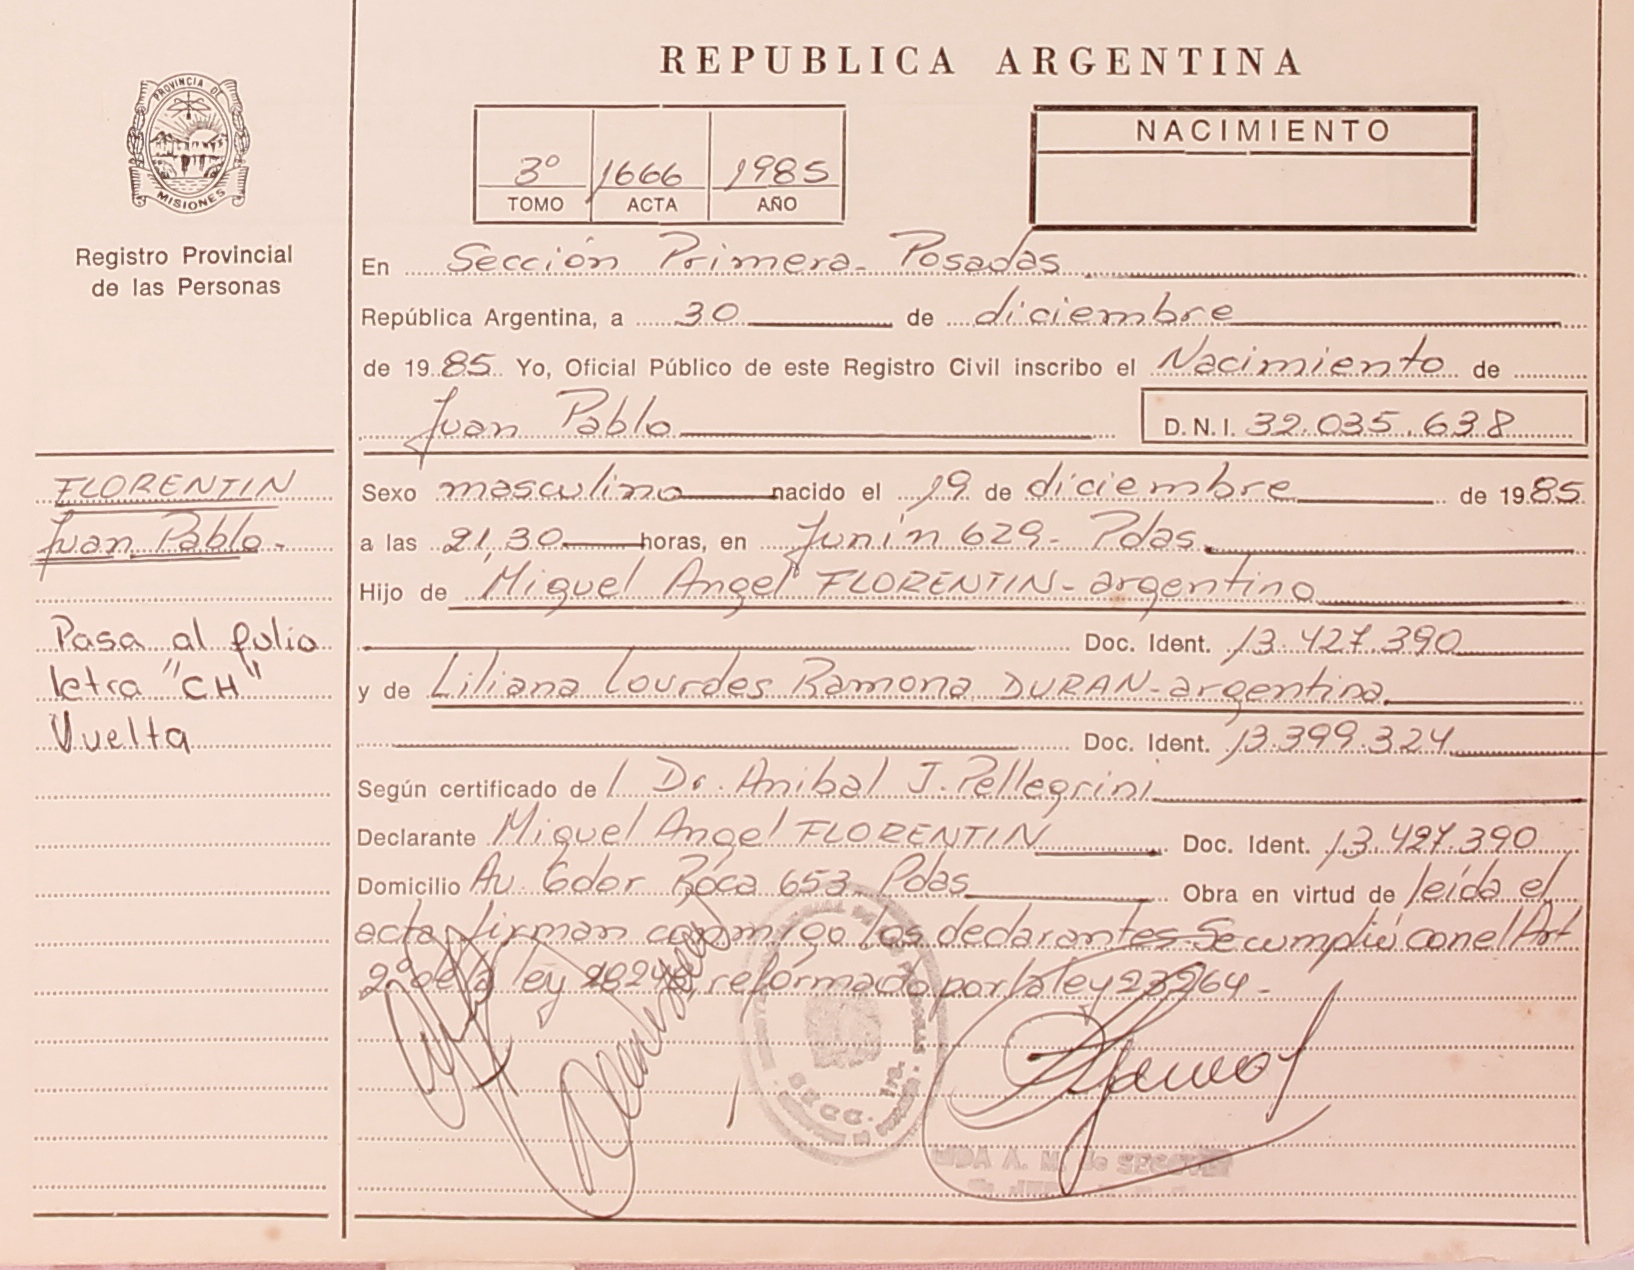 REPUBLICA ARGENTINA
PROVINCIA DE
MISIONES
Registro Provincial
de las Personas
3º 1666 1985
TOMO ACTA AÑO
NACIMIENTO
En Sección Primera - Posadas
República Argentina, a 30 de diciembre
de 1985 Yo, Oficial Público de este Registro Civil inscribo el Nacimiento de
Juan Pablo D.N.I. 32.035.638
FLORENTIN
Juan Pablo.-
Pasa al folio
letra "CH"
Vuelta
Sexo masculino nacido el 19 de diciembre de 1985
a las 21,30 horas, en Junin 629 - Pdas.
Hijo de Miguel Angel FLORENTIN - argentino
Doc. Ident. 13.427.390
y de Liliana Lourdes Ramona DURAN - argentina
Doc. Ident. 13.399.324
Según certificado de l Dr. Anibal J. Pellegrini
Declarante Miguel Angel FLORENTIN Doc. Ident. 13.427.390
Domicilio Av. Roca 653 Pdas Obra en virtud de leída el
acta firman conmigo los declarantes - Se cumplió con el Art
2º de la ley reformado por la ley 23264 -
SECC. 1ra.
A. M. de